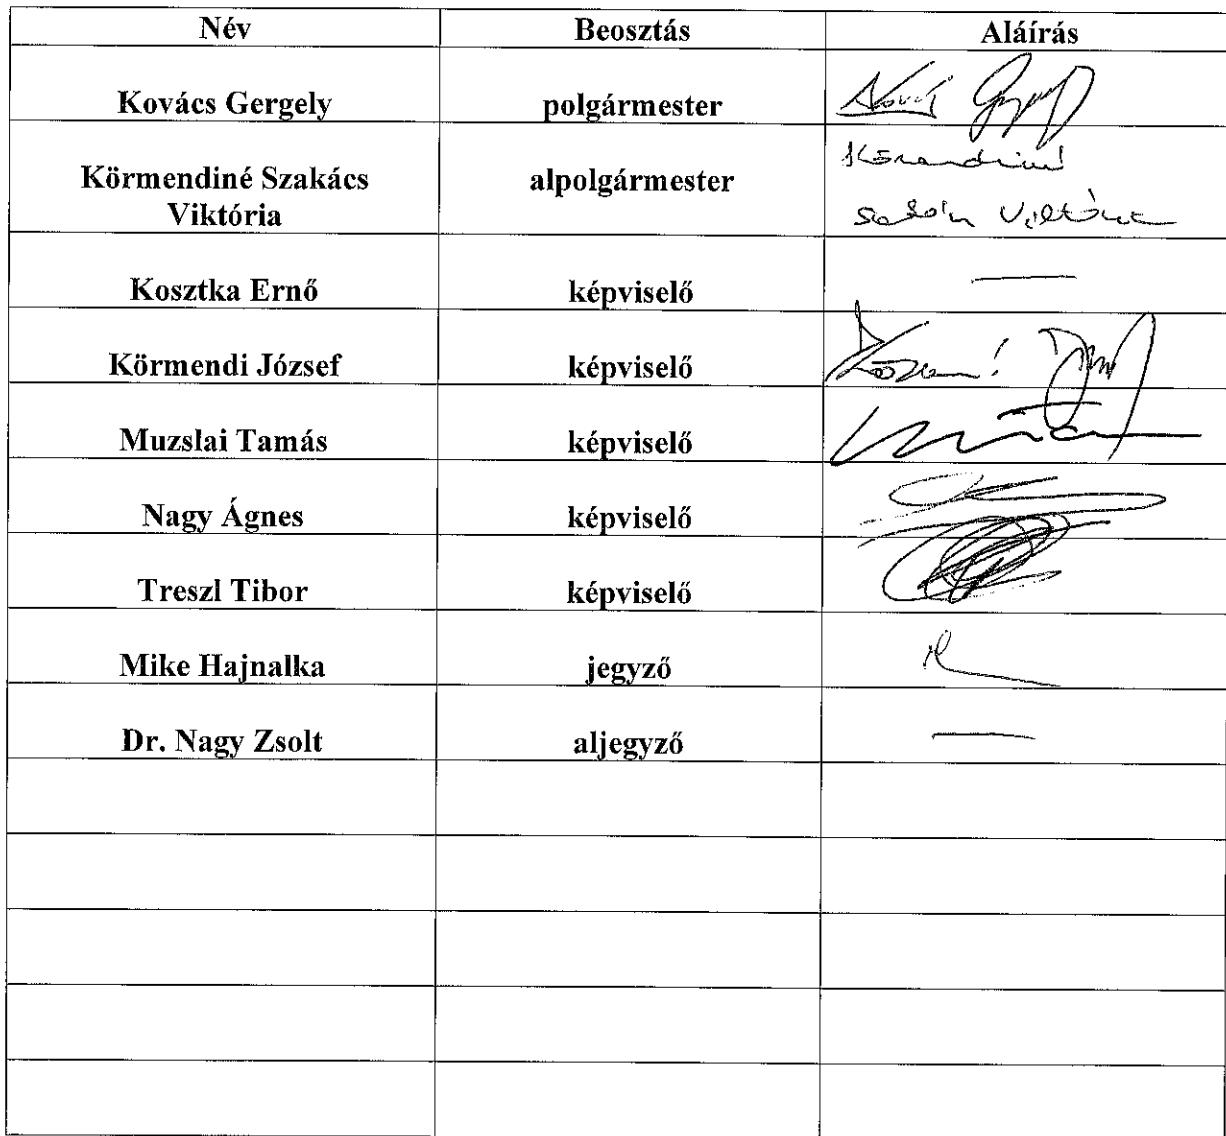 Név Beosztás Aláírás
Kovács Gergely polgármester
Körmendiné Szakács alpolgármester
Viktória
Kosztka Ernő képviselő —
Körmendi József képviselő
Muzslai Tamás képviselő
Nagy Ágnes képviselő
Treszl Tibor képviselő
Mike Hajnalka jegyző
Dr. Nagy Zsolt aljegyző —